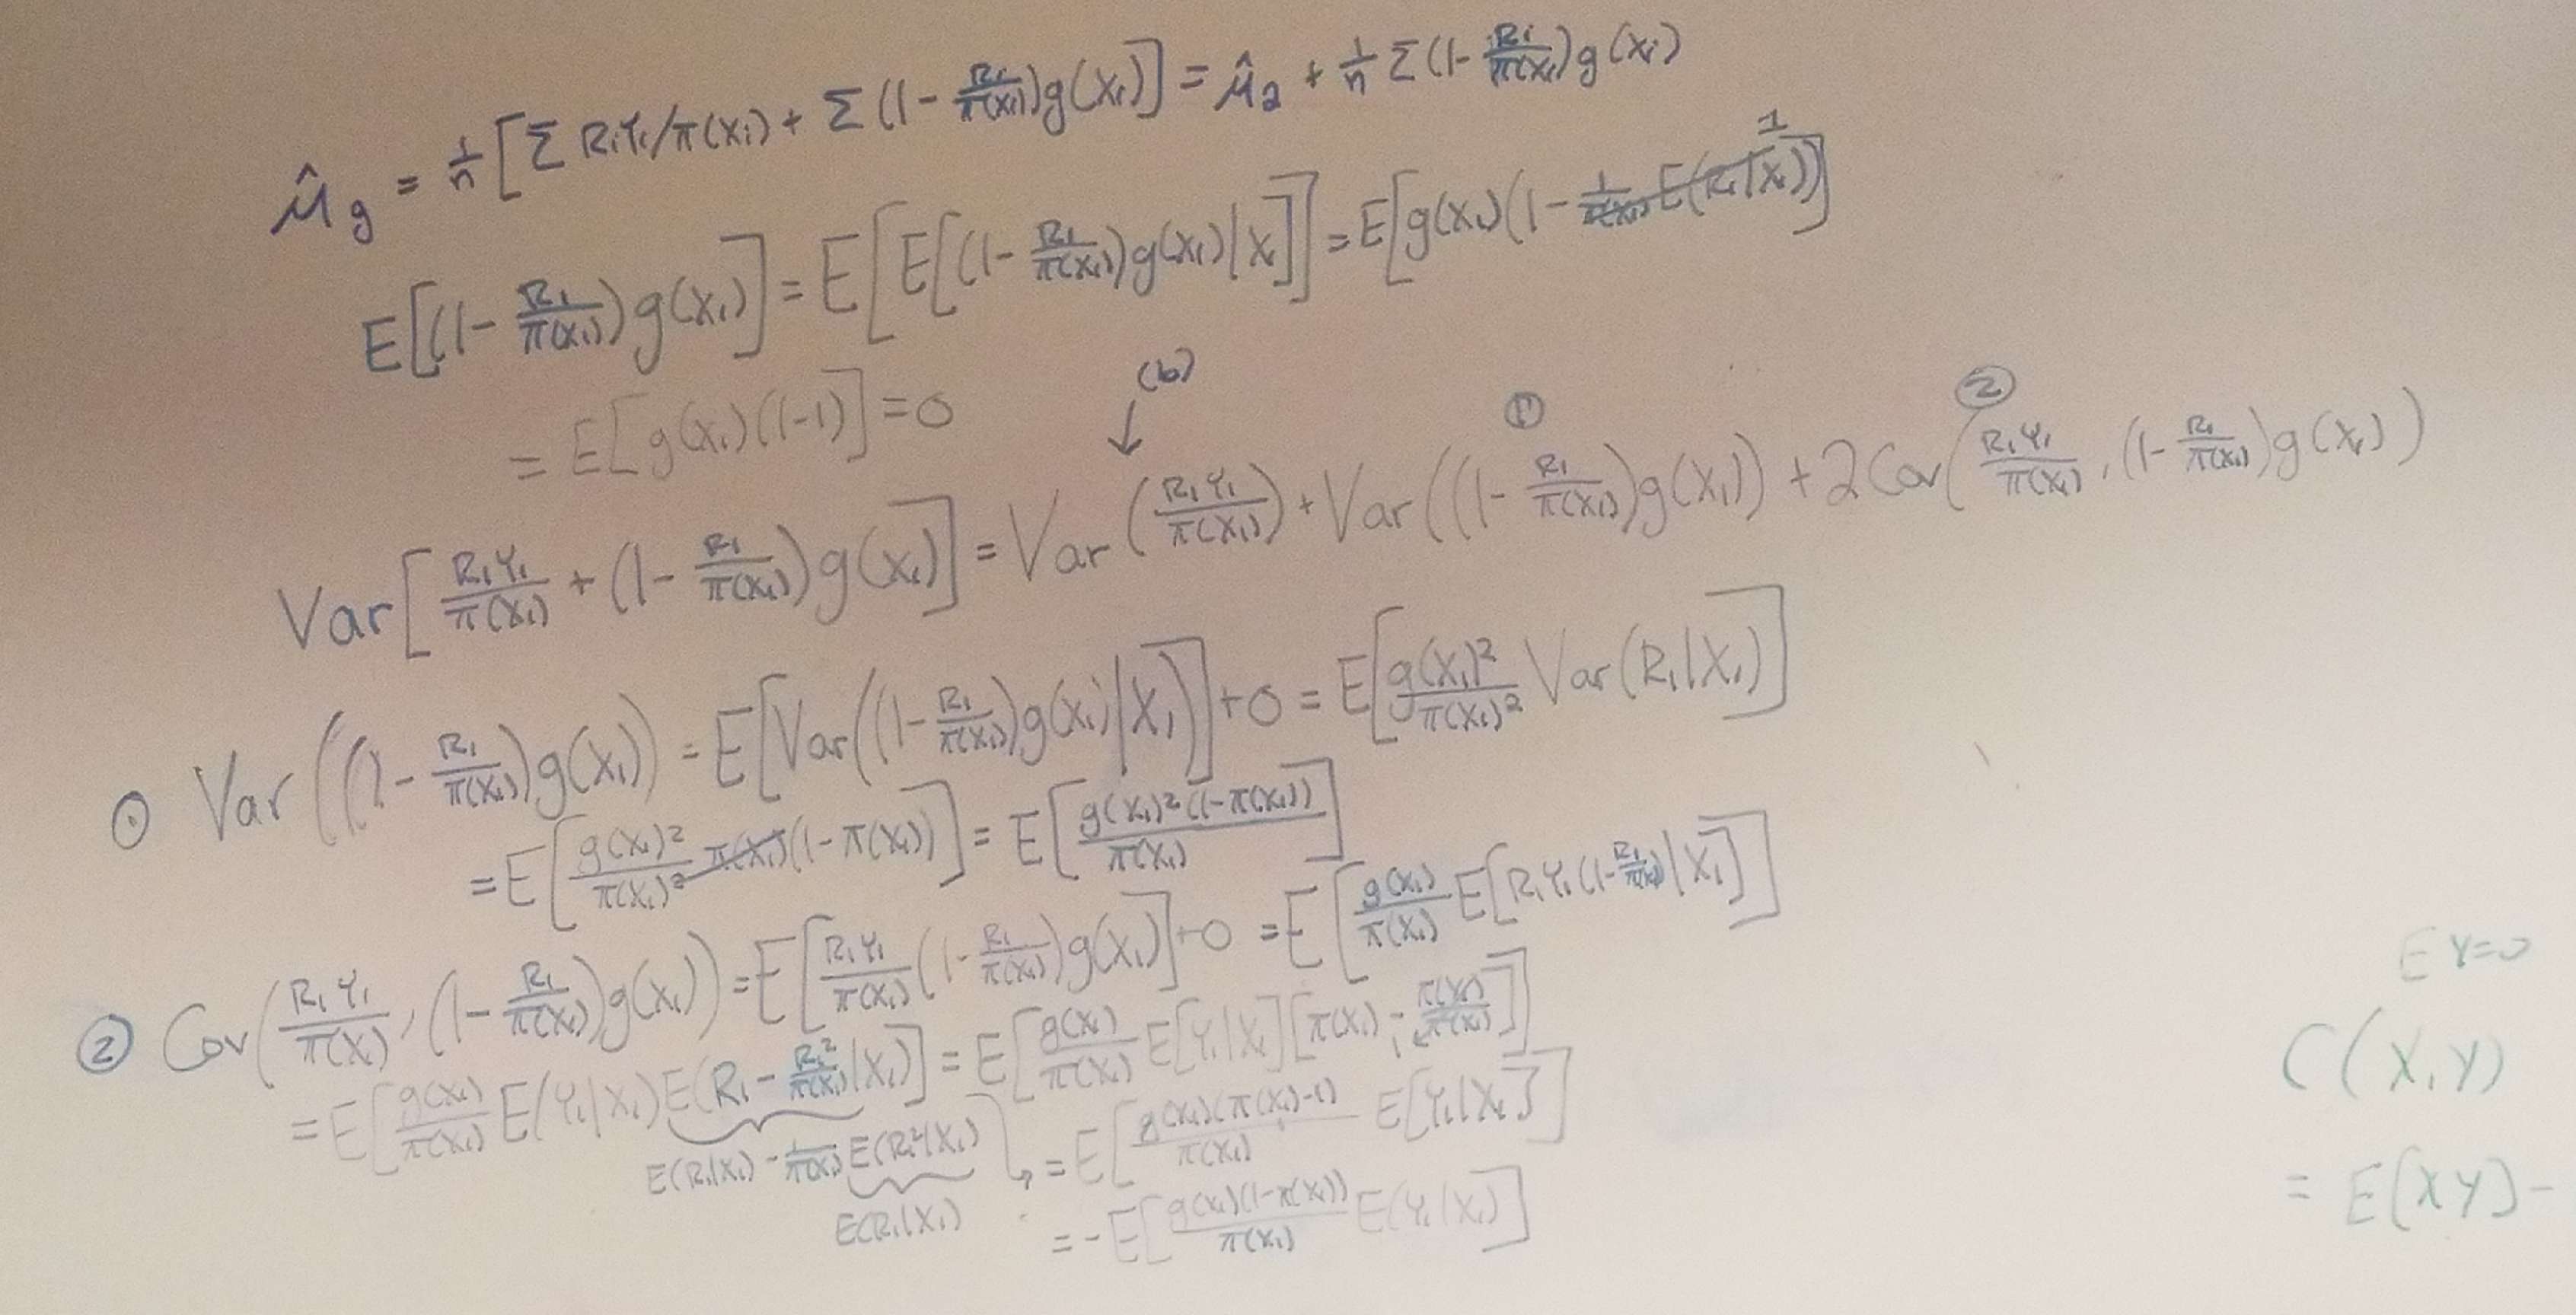 μ̂_g = 1/n [Σ RᵢYᵢ/π(Xᵢ) + Σ (1 - Rᵢ/π(Xᵢ)) g(Xᵢ)] = μ̂₂ + 1/n Σ (1 - Rᵢ/π(Xᵢ)) g(Xᵢ)
E[(1 - R₁/π(X₁)) g(X₁)] = E[E[(1 - R₁/π(X₁)) g(X₁) | X₁]] = E[g(X₁)(1 - 1/π(X₁) E(R₁|X₁))] 1
= E[g(X₁)(1-1)] = 0
(b) ↓ ① ②
Var[R₁Y₁/π(X₁) + (1 - R₁/π(X₁)) g(X₁)] = Var(R₁Y₁/π(X₁)) + Var((1 - R₁/π(X₁)) g(X₁)) + 2Cov(R₁Y₁/π(X₁), (1 - R₁/π(X₁)) g(X₁))
① Var((1 - R₁/π(X₁)) g(X₁)) = E[Var((1 - R₁/π(X₁)) g(X₁) | X₁)] + 0 = E[g(X₁)²/π(X₁)² Var(R₁|X₁)]
= E[g(X₁)²/π(X₁)² π(X₁)(1 - π(X₁))] = E[g(X₁)²(1-π(X₁))/π(X₁)]
② Cov(R₁Y₁/π(X₁), (1 - R₁/π(X₁)) g(X₁)) = E[R₁Y₁/π(X₁) (1 - R₁/π(X₁)) g(X₁)] - 0 = E[g(X₁)/π(X₁) E[R₁Y₁(1 - R₁/π(X₁)) | X₁]]
= E[g(X₁)/π(X₁) E(Y₁|X₁) E(R₁ - R₁²/π(X₁) | X₁)] = E[g(X₁)/π(X₁) E[Y₁|X₁][π(X₁) - π(X₁)/π(X₁)]] 1
E(R₁|X₁) - 1/π(X₁) E(R₁²|X₁)
E(R₁|X₁)
↳ = E[g(X₁)(π(X₁)-1)/π(X₁) E[Y₁|X₁]]
= -E[g(X₁)(1-π(X₁))/π(X₁) E(Y₁|X₁)]
EY=0
C(X,Y)
= E[XY] -